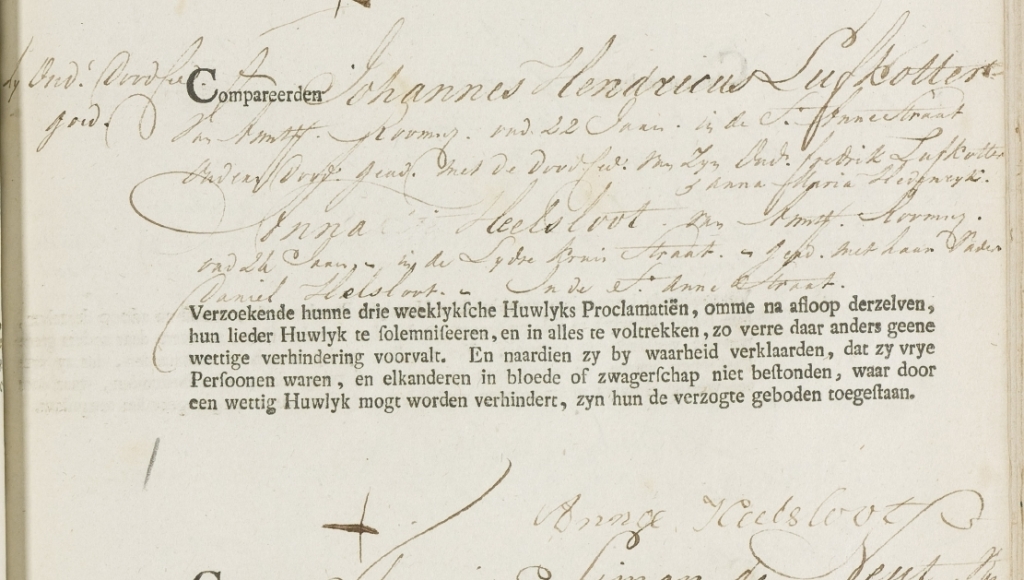 Oud.ˢ Dood sie
goed.
Compareerden Johannes Hendricus Lufkotter
Van Amstͫ. Rooms. oud 22 Jaar. in de Sᵗ. Anne Straat
Ouders Dood. Geadˢ. Met de Dood Ced. Van Zyn Oudˢ. fredrik Lufkotter
& anna Maria
Anna Heelsloot. Van Amstͫ. Rooms.
oud 24 Jaar, in de Lydse Kruis Straat. Geadˢ. Met haar Vader
Daniel Helsloot. In de Sᵗ. Anne Straat.
Verzoekende hunne drie weeklykſche Huwlyks Proclamatiën, omme na afloop derzelven,
hun lieder Huwlyk te ſolemniſeeren, en in alles te voltrekken, zo verre daar anders geene
wettige verhindering voorvalt. En naardien zy by waarheid verklaarden, dat zy vrye
Perſoonen waren, en elkanderen in bloede of zwagerſchap niet beſtonden, waar door
een wettig Huwlyk mogt worden verhindert, zyn hun de verzogte geboden toegeſtaan.
Anna Heelsloot